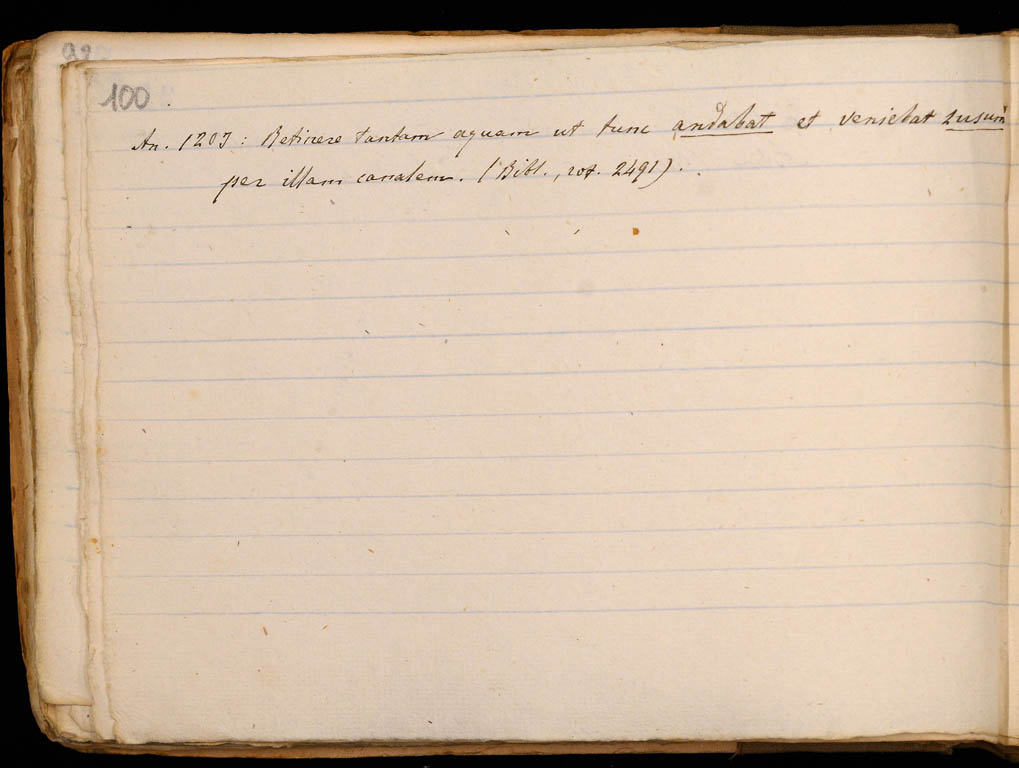 98
100
An. 1203 : Retinere tantam aquam ut tunc andabat et veniebat zusum
per illam canalem. (Bibl., rot. 2491).